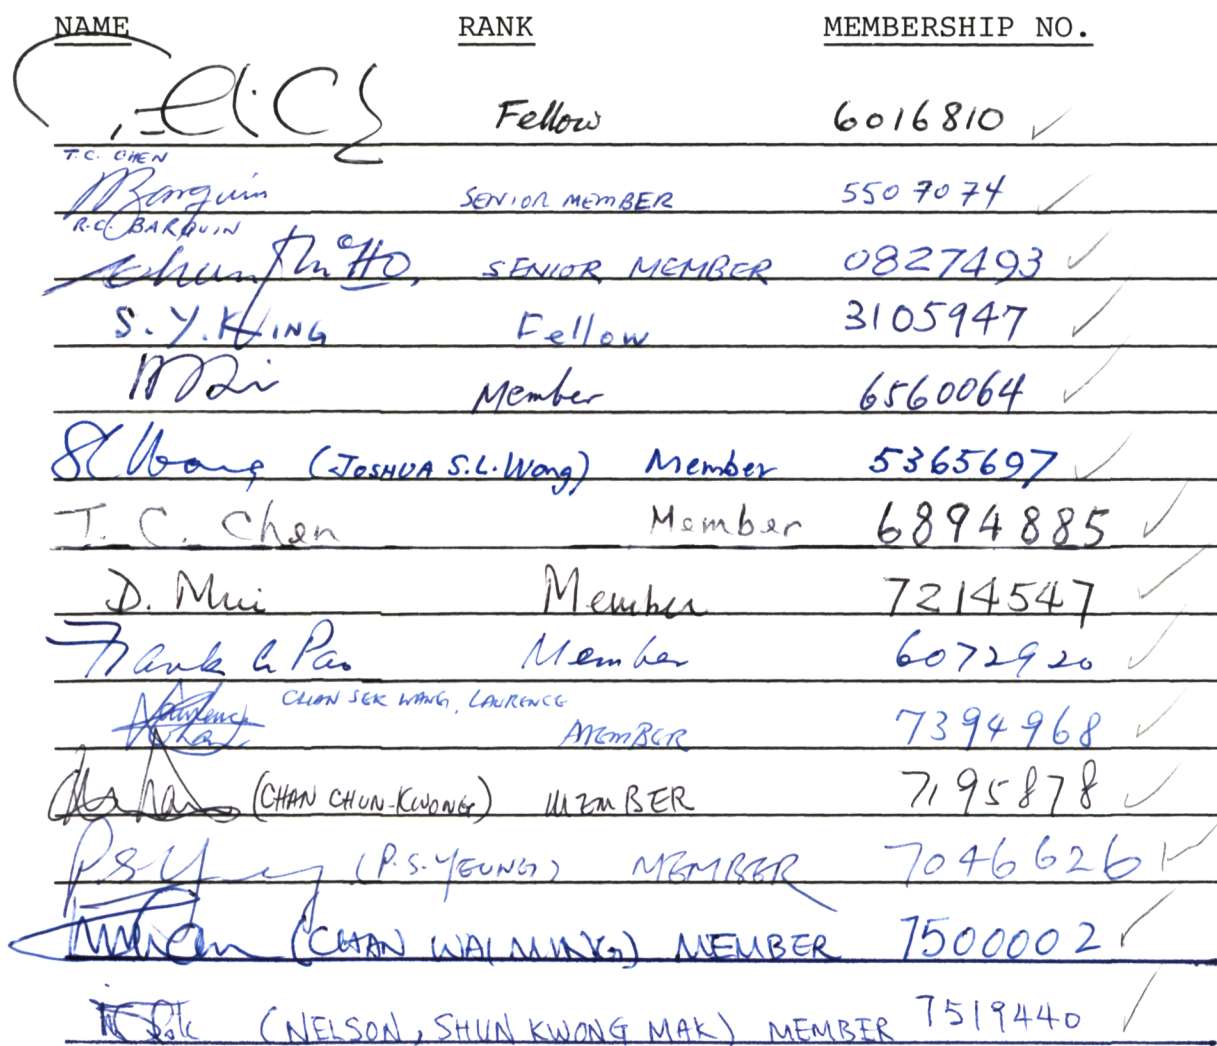 NAME RANK MEMBERSHIP NO.
Fellow 6016810
T.C. CHEN
Barquin SENIOR MEMBER 5507074
R.C. BARQUIN
HO, SENIOR MEMBER 0827493
S. Y. KUNG Fellow 3105947
Member 6560064
SL Wong (JOSHUA S.L. Wong) Member 5365697
T. C. Chen Member 6894885
D. Mui Member 7214547
Frank Pao Member 6072920
CHAN SEK WANG, LAURENCE
Laurence Chan MEMBER 7394968
(CHAN CHUN-KWONG) MEMBER 7195878
P.S. Yeung (P.S. YEUNG) MEMBER 7046626
(CHAN WAI MING) MEMBER 7500002
(NELSON, SHUN KWONG MAK) MEMBER 7519440